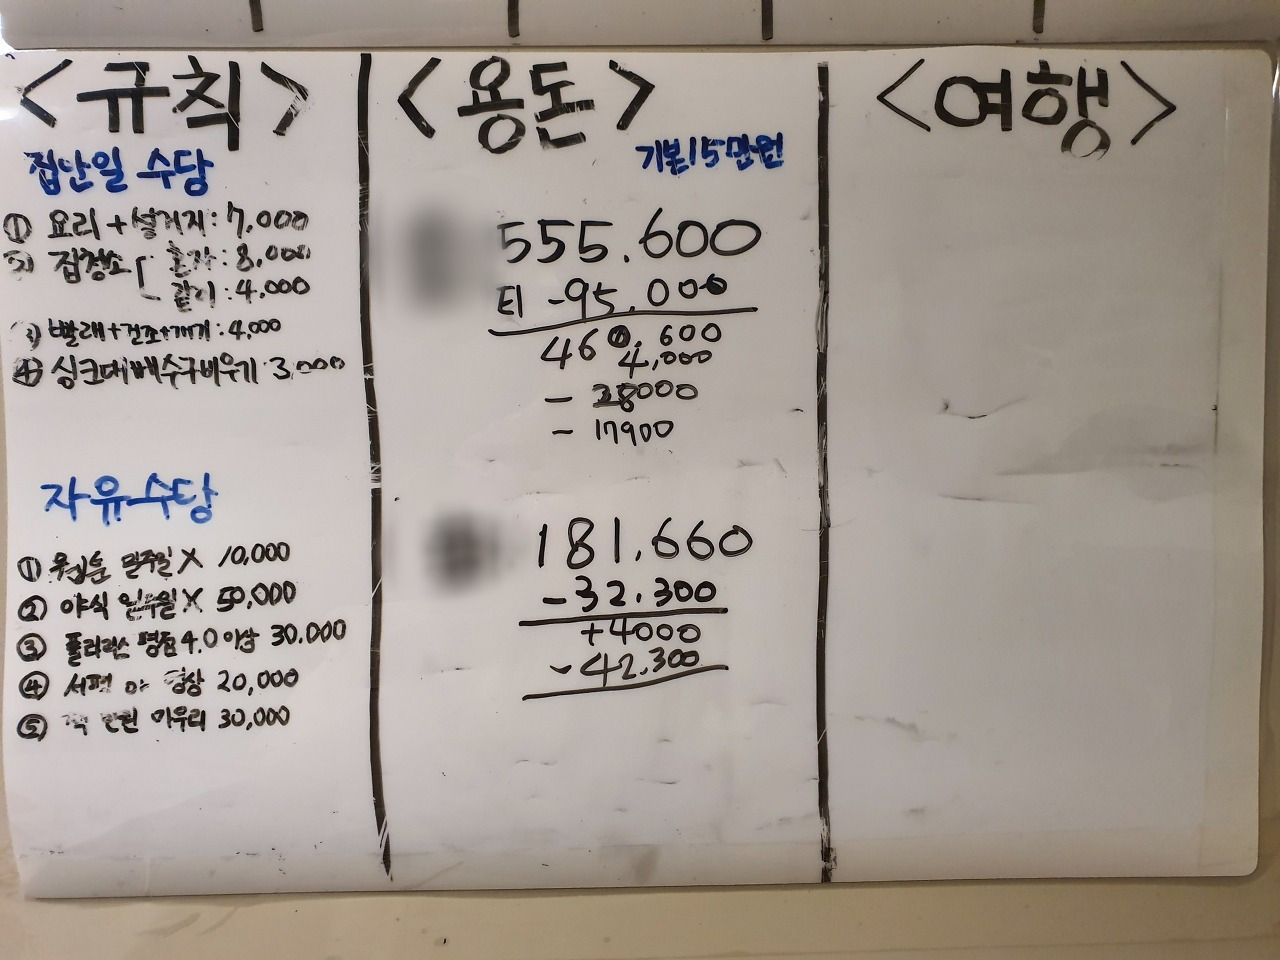 <규칙>
집안일 수당
① 요리+설거지:7,000
② 집청소 [ 혼자:8,000
같이:4,000
③ 빨래+건조+개기:4,000
④ 싱크대배수구비우기 3,000
자유수당
① 일주일 X 10,000
② 야식 일주일 X 50,000
③ 평점 4.0 이상 30.000
④ 서평 영상 20,000
⑤ 마무리 30,000
<용돈>
기본15만원
555.600
티 -95.000
460.600
4,000
- 38000
- 17900
181.660
-32.300
+4000
-42.300
<여행>